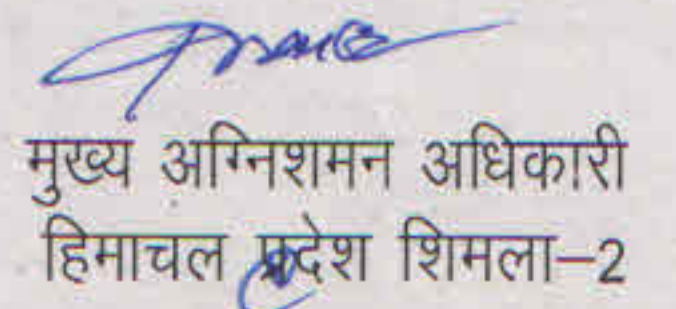 मुख्य अग्निशमन अधिकारी
हिमाचल प्रदेश शिमला–2